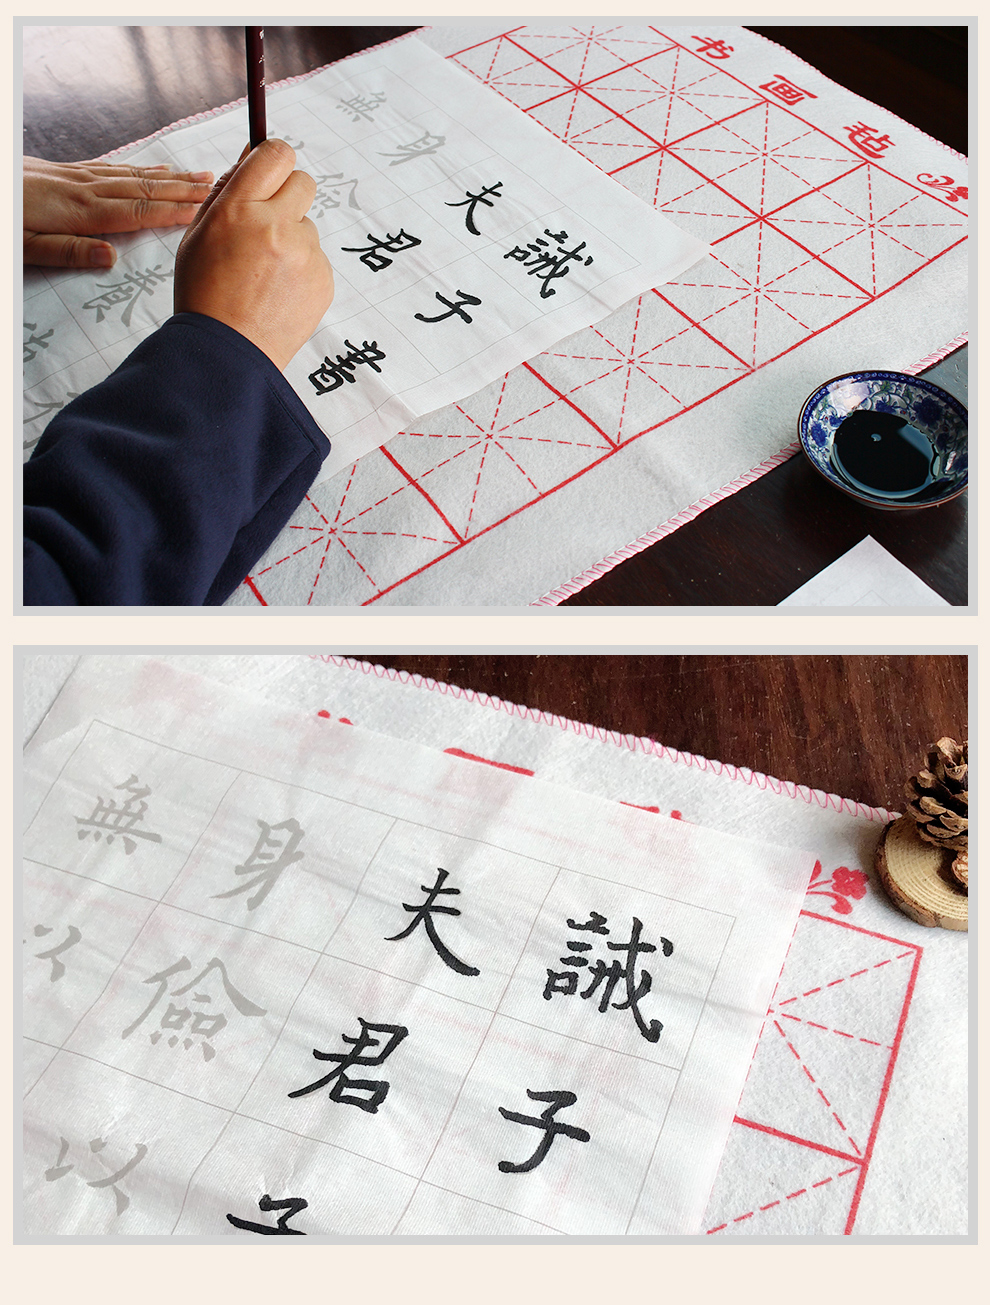 书画毡
誡子書
夫君
身儉
養
無
誡子
夫君子
身儉以
無以